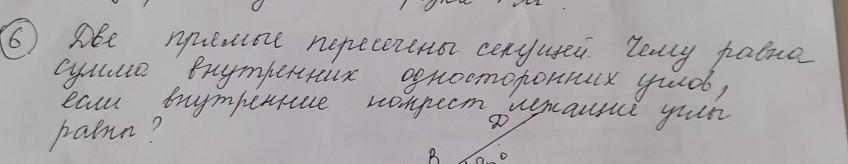 6 Две прямые пересечены секущей. Чему равна
сумма внутренних односторонних углов,
если внутренние накрест лежащие углы
равны?
D
B